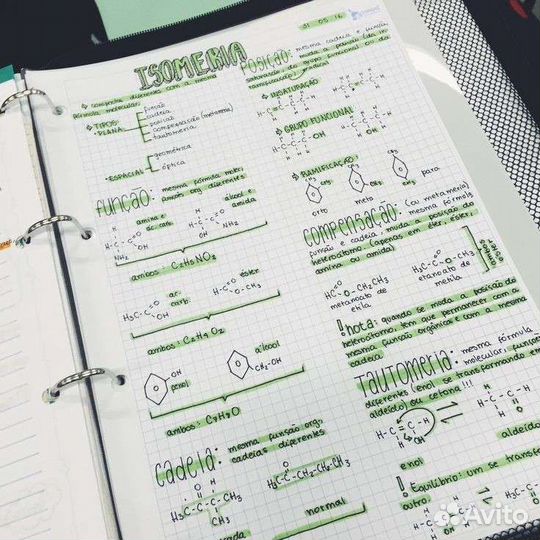 ISOMERIA
compostos diferentes com a mesma
fórmula molecular.
TIPOS:
• PLANA
função
cadeia
posição
compensação (metameria)
tautomeria
• ESPACIAL
geométrica
óptica
função: mesma fórmula mole,
funções org. diferentes
amina e
ác. carb.
álcool e
amida
NH₂
OH
NH₂
ambos: C₂H₅NO₂
H₃C-C
OH
ác.
carb.
H-C
O-CH₃
éster
ambos: C₂H₄O₂
OH
fenol
álcool
CH₂-OH
ambos: C₇H₈O
cadeia: mesma função org.
cadeias diferentes
H₃C-C-C-CH₃
CH₃
H₃C-C-CH₂-CH₂-CH₃
normal
31.05.16
POSIÇÃO: mesma cadeia e função
muda a posição (da in-
saturação, do grupo funcional ou da
ramificação)
INSATURAÇÃO
GRUPO FUNCIONAL
RAMIFICAÇÃO:
CH₃
CH₃
orto
meta
para
compensação: (ou metameria)
mesma fórmula,
função e cadeia; muda a posição do
heteroátomo (apenas em éter, éster,
amina ou amida)
HC-O-CH₂CH₃
metanoato de
etila
H₃C-C-O-CH₃
etanoato de
metila
ésteres
! nota: quando se muda a posição do
heteroátomo, tem que permanecer com a
mesma função orgânica e com a mesma
cadeia
tautomeria: mesma fórmula
molecular, funções
diferentes (enol se transforma em
aldeído) ou cetona!!!
H-C=C-H
OH
enol
aldeído
! Equilíbrio: um se transforma
outro.
H₃C
Avito